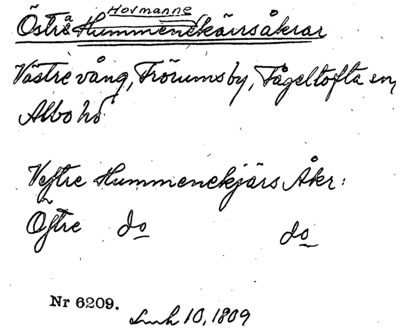 Hovmanne
Östra Hummenekärrsåkrar
Västre vång, Frörumsby, Fågeltofta en,
Albo hd
Vestre Hummenekjärs Åkr:
Östre do do
Nr 6209.
Lmh 10, 1809